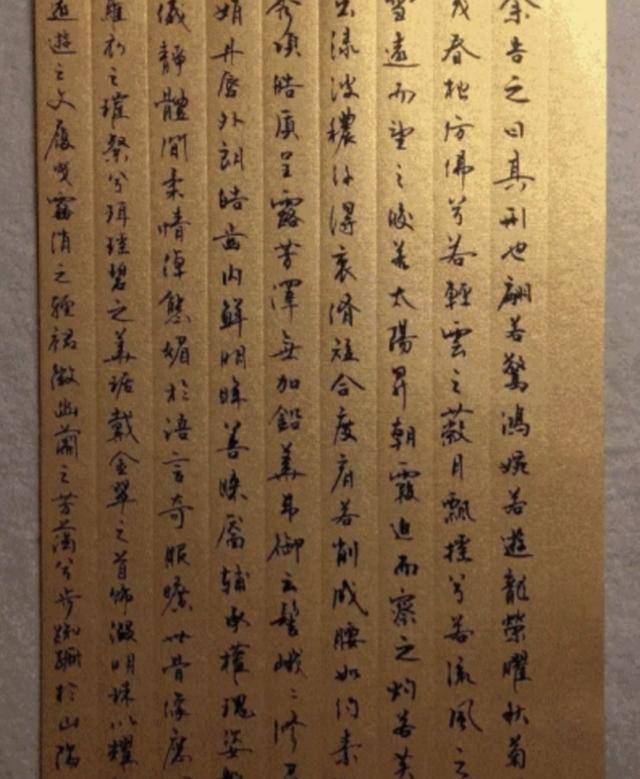 余告之曰其形也翩若驚鴻婉若遊龍榮曜秋菊
茂春松彷彿兮若輕雲之蔽月飄飖兮若流風之
雪遠而望之皎若太陽昇朝霞迫而察之灼若芙
出淥波穠纖得衷脩短合度肩若削成腰如約素
秀項皓質呈露芳澤無加鉛華弗御雲髻峨〻脩
娟丹唇外朗皓齒內鮮明眸善睞靨輔承權瑰姿
儀靜體閒柔情綽態媚於語言奇服曠世骨像應
羅衣之璀粲兮珥瑤碧之華琚戴金翠之首飾綴明珠以耀
遠遊之文履曳霧綃之輕裾微幽蘭之芳藹兮步踟躕於山隅